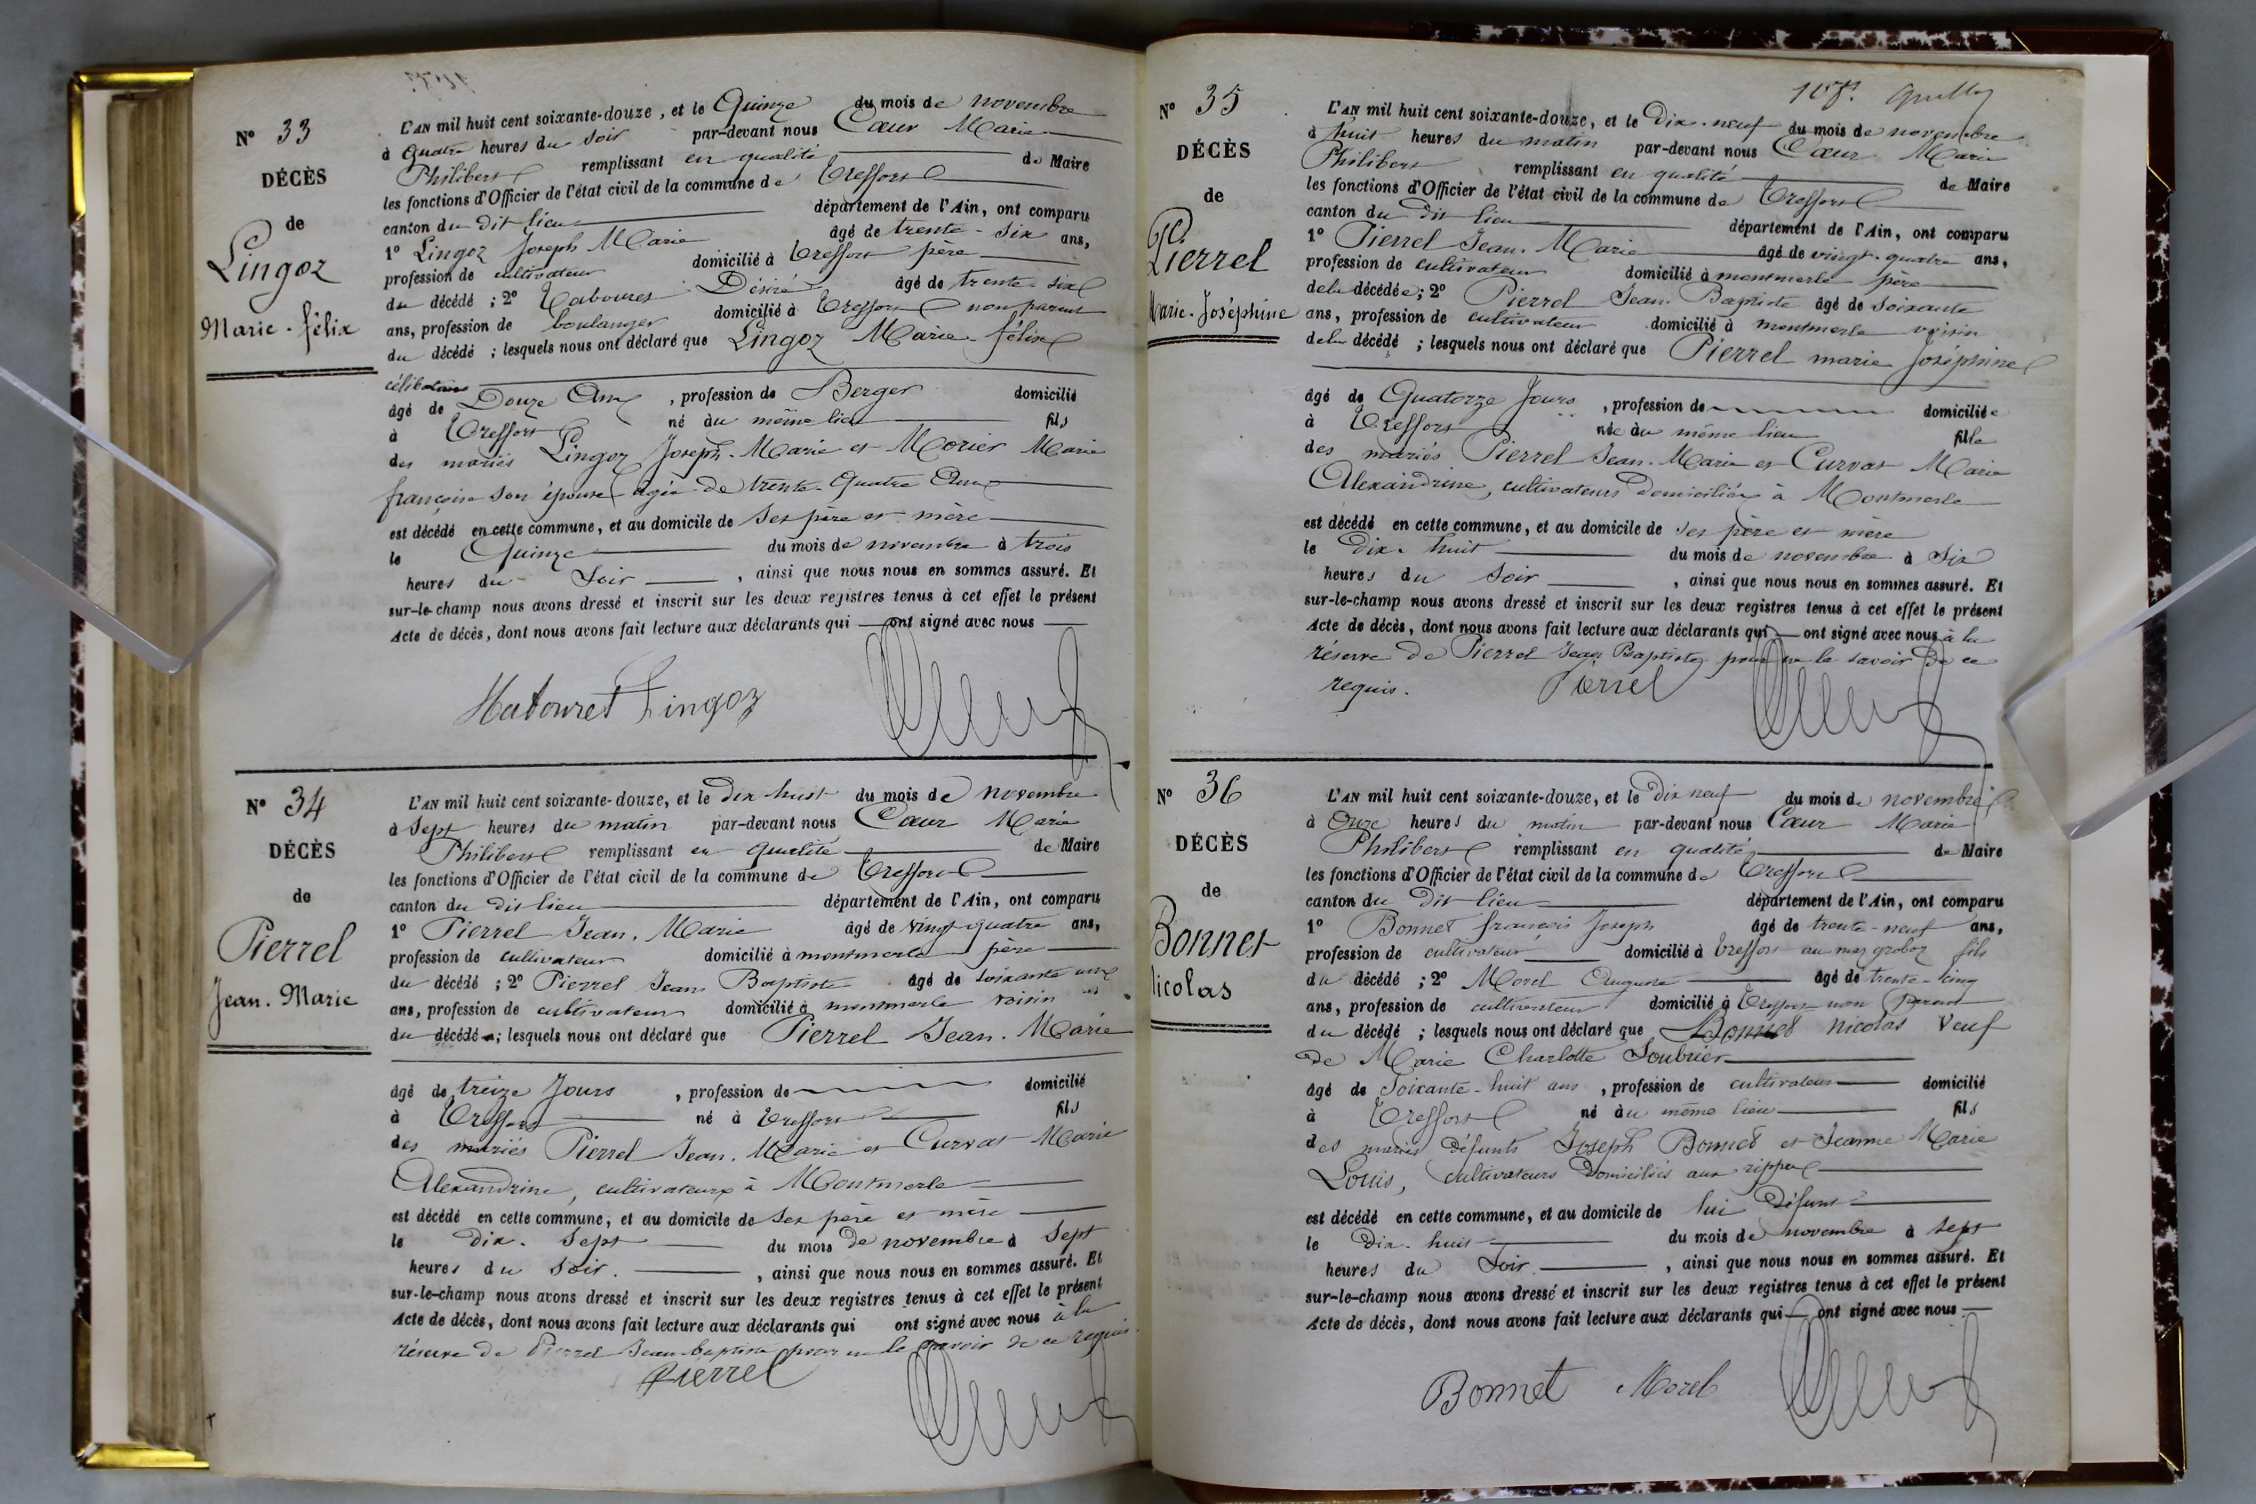 N° 33
DÉCÈS
de
Lingoz
Marie-félix
L'AN mil huit cent soixante-douze, et le Quinze du mois de novembre
à Quatre heures du soir par-devant nous Cœur Marie
Philibert remplissant en qualité de Maire
les fonctions d'Officier de l'état civil de la commune de Treffort
canton du dit lieu département de l'Ain, ont comparu
1° Lingoz Joseph Marie âgé de trente-six ans,
profession de cultivateur domicilié à Treffort père
du décédé ; 2° Tabouret Désiré âgé de trente-six
ans, profession de boulanger domicilié à Treffort non parent
du décédé ; lesquels nous ont déclaré que Lingoz Marie-félix
célibataire
âgé de Douze Ans, profession de Berger domicilié
à Treffort né au même lieu fils
des mariés Lingoz Joseph-Marie et Morier Marie
françoise son épouse âgée de trente-Quatre Ans
est décédé en cette commune, et au domicile de ses père et mère
le Quinze du mois de novembre à trois
heures du Soir, ainsi que nous nous en sommes assuré. Et
sur-le-champ nous avons dressé et inscrit sur les deux registres tenus à cet effet le présent
Acte de décès, dont nous avons fait lecture aux déclarants qui ont signé avec nous
Lingoz
N° 34
DÉCÈS
de
Pierrel
Jean-Marie
L'AN mil huit cent soixante-douze, et le dix huit du mois de novembre
à Sept heures du matin par-devant nous Cœur Marie
Philibert remplissant en qualité de Maire
les fonctions d'Officier de l'état civil de la commune de Treffort
canton du dit lieu département de l'Ain, ont comparu
1° Pierrel Jean-Marie âgé de vingt-quatre ans,
profession de cultivateur domicilié à montmerle père
du décédé ; 2° Pierrel Jean Baptiste âgé de soixante
ans, profession de cultivateur domicilié à montmerle voisin
du décédé ; lesquels nous ont déclaré que Pierrel Jean-Marie
âgé de treize Jours, profession de domicilié
à Treffort né à Treffort fils
des mariés Pierrel Jean-Marie et Curvat Marie
Alexandrine, cultivateurs à Montmerle
est décédé en cette commune, et au domicile de ses père et mère
le dix-Sept du mois de novembre à Sept
heures du Soir, ainsi que nous nous en sommes assuré. Et
sur-le-champ nous avons dressé et inscrit sur les deux registres tenus à cet effet le présent
Acte de décès, dont nous avons fait lecture aux déclarants qui ont signé avec nous à la
réserve de Pierrel Jean-baptiste pour ne le savoir de ce requis.
Pierrel
N° 35
DÉCÈS
de
Pierrel
Marie-Joséphine
L'AN mil huit cent soixante-douze, et le Dix-neuf du mois de novembre
à huit heures du matin par-devant nous Cœur Marie
Philibert remplissant en qualité de Maire
les fonctions d'Officier de l'état civil de la commune de Treffort
canton du Dit lieu département de l'Ain, ont comparu
1° Pierrel Jean-Marie âgé de vingt-quatre ans,
profession de cultivateur domicilié à montmerle père
de la décédée ; 2° Pierrel Jean Baptiste âgé de soixante
ans, profession de cultivateur domicilié à montmerle voisin
de la décédé ; lesquels nous ont déclaré que Pierrel marie Joséphine
âgé de Quatorze Jours, profession de domiciliée
à Treffort née au même lieu fille
des mariés Pierrel Jean-Marie et Curvat Marie
Alexandrine, cultivateurs domiciliés à Montmerle
est décédé en cette commune, et au domicile de ses père et mère
le Dix-huit du mois de novembre à Six
heures du Soir, ainsi que nous nous en sommes assuré. Et
sur-le-champ nous avons dressé et inscrit sur les deux registres tenus à cet effet le présent
Acte de décès, dont nous avons fait lecture aux déclarants qui ont signé avec nous à la
réserve de Pierrel Jean Baptiste pour ne le savoir de ce
requis.
Pierrel
N° 36
DÉCÈS
de
Bonnet
Nicolas
L'AN mil huit cent soixante-douze, et le Dix neuf du mois de novembre
à Onze heures du matin par-devant nous Cœur Marie
Philibert remplissant en qualité de Maire
les fonctions d'Officier de l'état civil de la commune de Treffort
canton du Dit lieu département de l'Ain, ont comparu
1° Bonnet françois Joseph âgé de trente-neuf ans,
profession de cultivateur domicilié à Treffort au mas groboz fils
du décédé ; 2° Morel Auguste âgé de trente-cinq
ans, profession de cultivateur domicilié à Treffort non Parent
du décédé ; lesquels nous ont déclaré que Bonnet Nicolas Veuf
de Marie Charlotte Soubrier
âgé de Soixante-huit ans, profession de cultivateur domicilié
à Treffort né au même lieu fils
des mariés défunts Joseph Bonnet et Jeanne Marie
Louis, cultivateurs Domiciliés aux rippes
est décédé en cette commune, et au domicile de lui Défunt
le Dix-huit du mois de novembre à Sept
heures du Soir, ainsi que nous nous en sommes assuré. Et
sur-le-champ nous avons dressé et inscrit sur les deux registres tenus à cet effet le présent
Acte de décès, dont nous avons fait lecture aux déclarants qui ont signé avec nous
Bonnet Morel